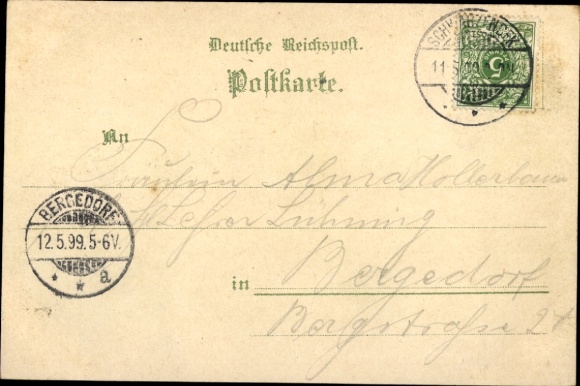 Deutsche Reichspost.
Postkarte.
SCHWARZENBEK
11.5.99
5
An
Fräulein Alma Hollerbaum
Lehrer Lühming
BERGEDORF
12.5.99.5-6V.
* * a
in Bergedorf
Bergstrasse 2